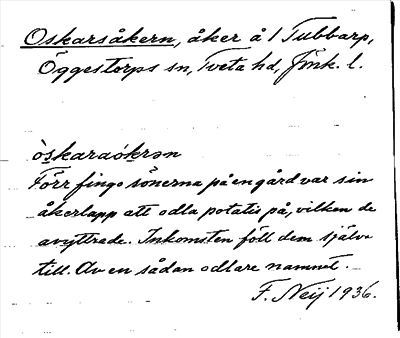 Oskarsåkern, åker å 1 Tubbarp,
Öggestorps sn, Tveta hd, Jönk. l.
òskaraókrən
Förr fingo sönerna på en gård var sin
åkerlapp att odla potatis på, vilken de
avyttrade. Inkomsten föll dem själva
till. Av en sådan odlare namnet.
F. Neij 1936.